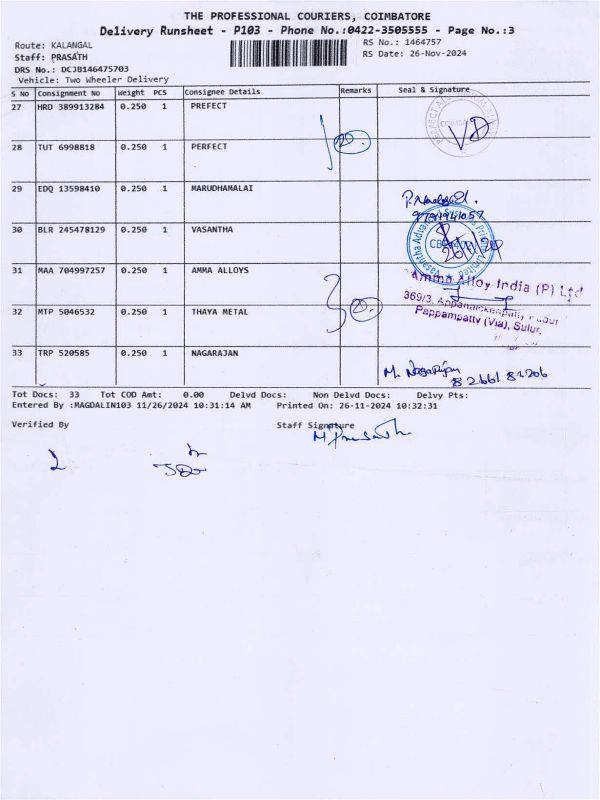 THE PROFESSIONAL COURIERS, COIMBATORE
Delivery Runsheet - P103 - Phone No.:0422-3505555 - Page No.:3
Route: KALANGAL RS No.: 1464757
Staff: PRASATH RS Date: 26-Nov-2024
DRS No.: DCJB146475703
Vehicle: Two Wheeler Delivery
S No Consignment No Weight PCS Consignee Details Remarks Seal & Signature
27 HRD 389913284 0.250 1 PREFECT
28 TUT 6998818 0.250 1 PERFECT
29 EDQ 13598410 0.250 1 MARUDHAMALAI
30 BLR 245478129 0.250 1 VASANTHA
31 MAA 704997257 0.250 1 AMMA ALLOYS
Amma Alloy India (P) Ltd
369/3,
Pappampatty (Via), Sulur.
32 MTP 5046532 0.250 1 THAYA METAL
33 TRP 520585 0.250 1 NAGARAJAN
M. Nagarajan
Tot Docs: 33 Tot COD Amt: 0.00 Delvd Docs: Non Delvd Docs: Delvy Pts:
Entered By :MAGDALIN103 11/26/2024 10:31:14 AM Printed On: 26-11-2024 10:32:31
Verified By Staff Signature
M Prasath